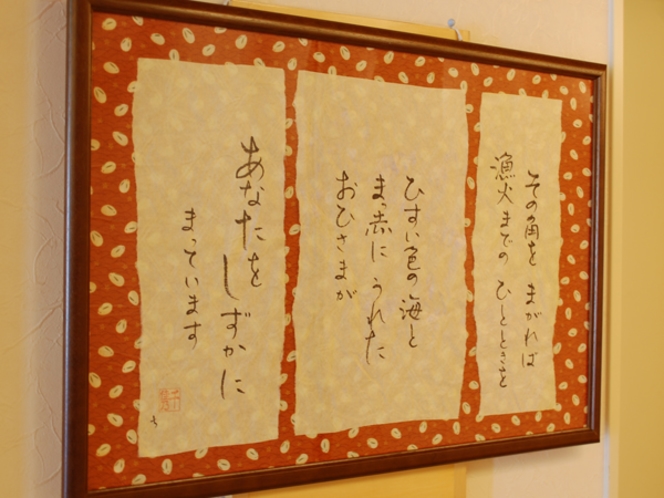 その角を まがれば
漁火までの ひとときを
ひすい色の 海と
まっ赤に うれた
おひさまが
あなたを しずかに
まっています